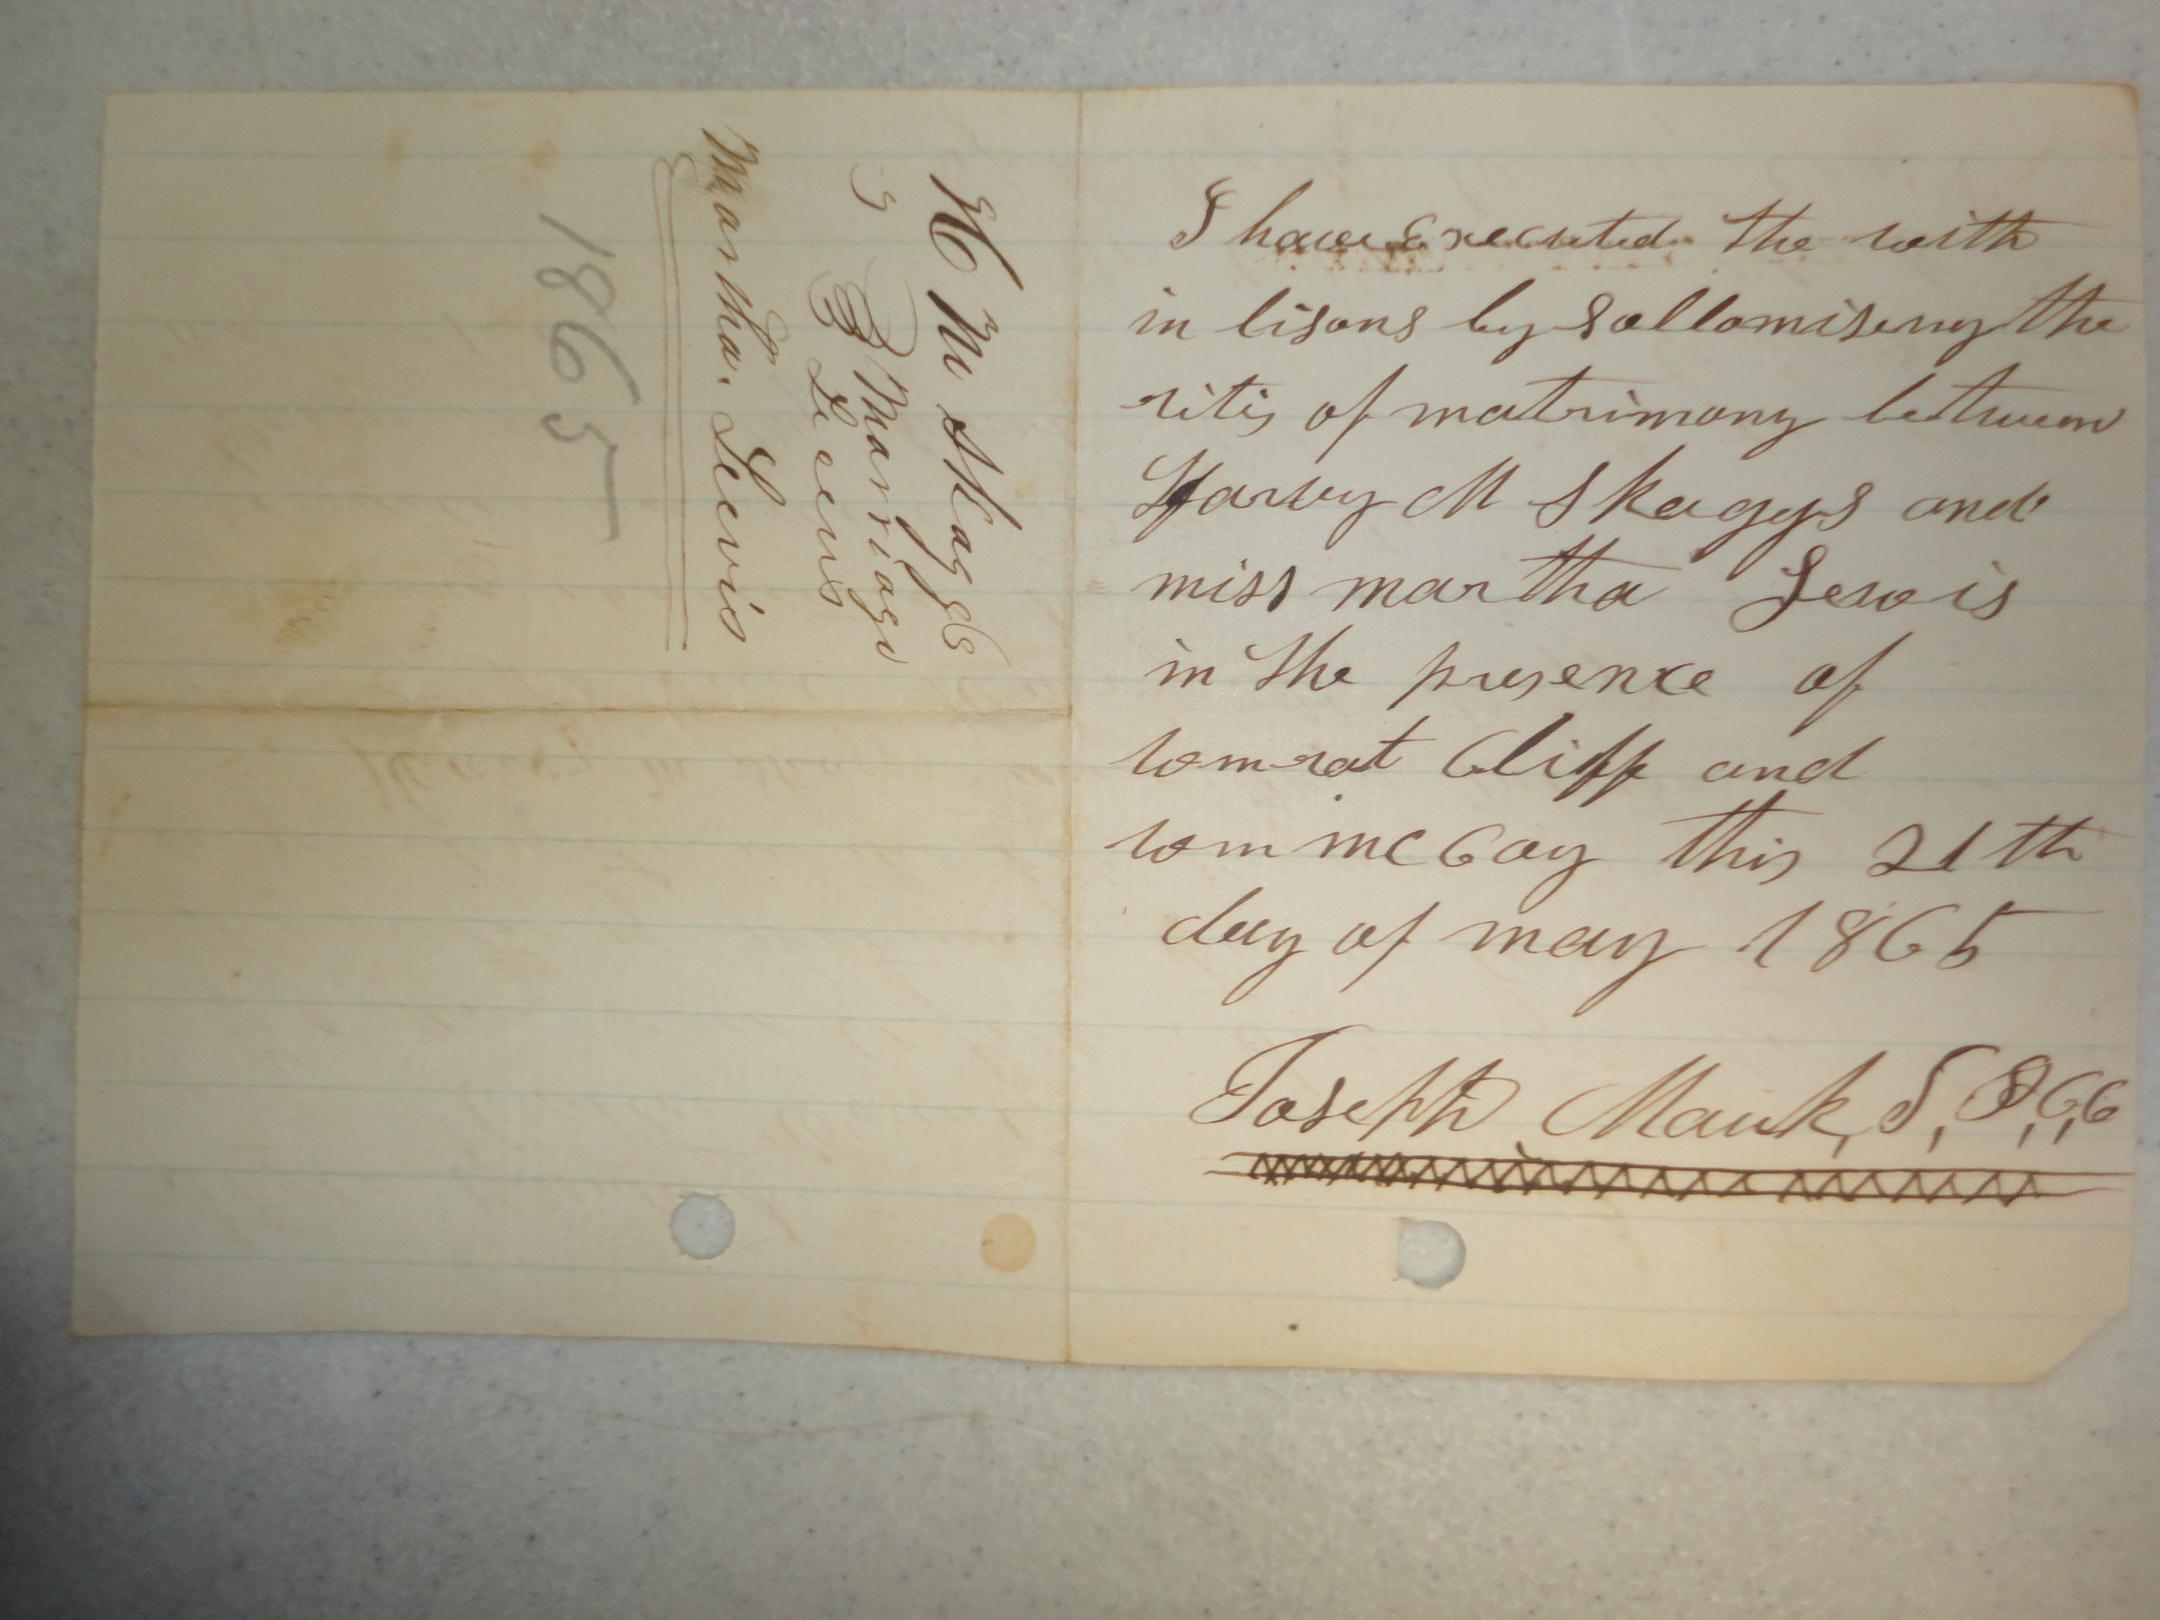 H M Skaggs
Marriage
Licens
Martha. Lewis
1865
I have executed the with
in lisons by sollomiseing the
rites of matrimony between
Harvy M Skaggs and
miss martha Lewis
in the presence of
wm rat Cliff and
wm mc Coy this 21th
day of may 1865
Joseph Mauk,